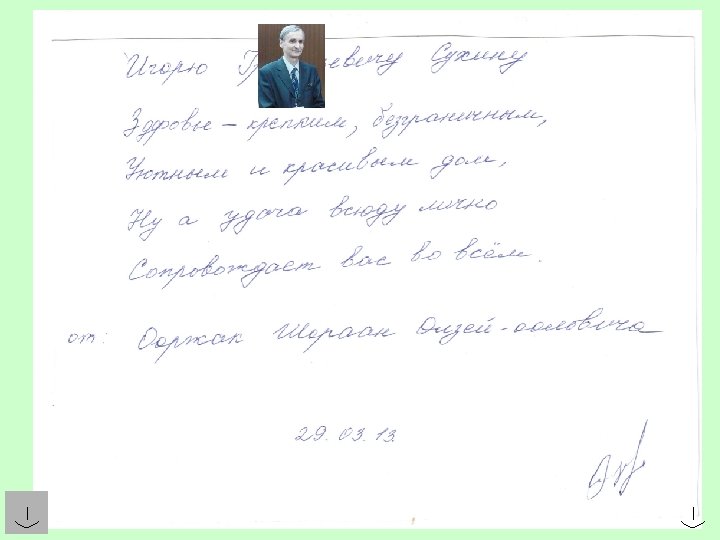 Игорю Сухину
Здоровье – крепким, безграничным,
Уютным и красивым дом,
Ну а удача всюду лично
Сопровождает вас во всём.
от: Ооржак Шораан Олзей-ооловича
29.03.13.